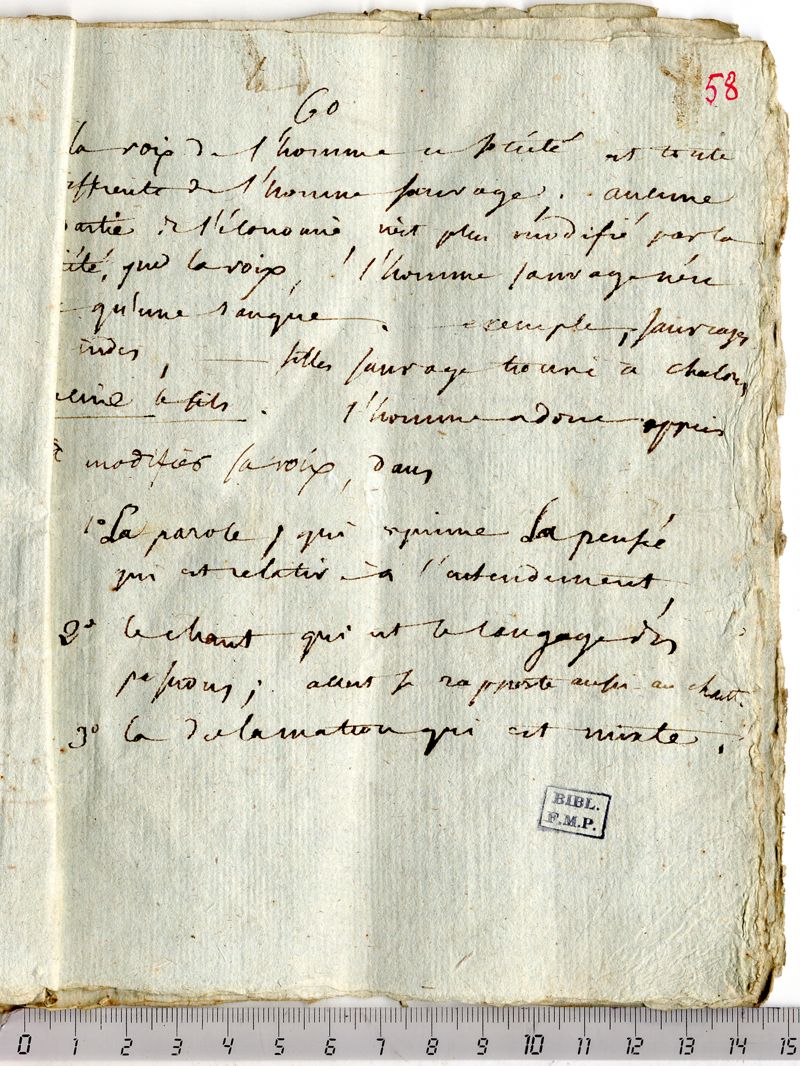 58
60
la voix de l'homme en société est toute
ifferente de l'homme sauvage. aucune
partie de l'économie n'est plus modifié par la
iété, que la voix, l'homme sauvage n'en
qu'une exemple, sauvages
indes, — filles sauvage trouvé à chalons,
le fils. l'homme a donc appris
modifier sa voix, dans
1° La parole, qui exprime La pensée
qui est relative à l'entendement,
2° le chant qui est le langage des
passions; accent se rapporte aussi au chant.
3° la declamation qui est mixte.
BIBL.
F.M.P.
0 1 2 3 4 5 6 7 8 9 10 11 12 13 14 15